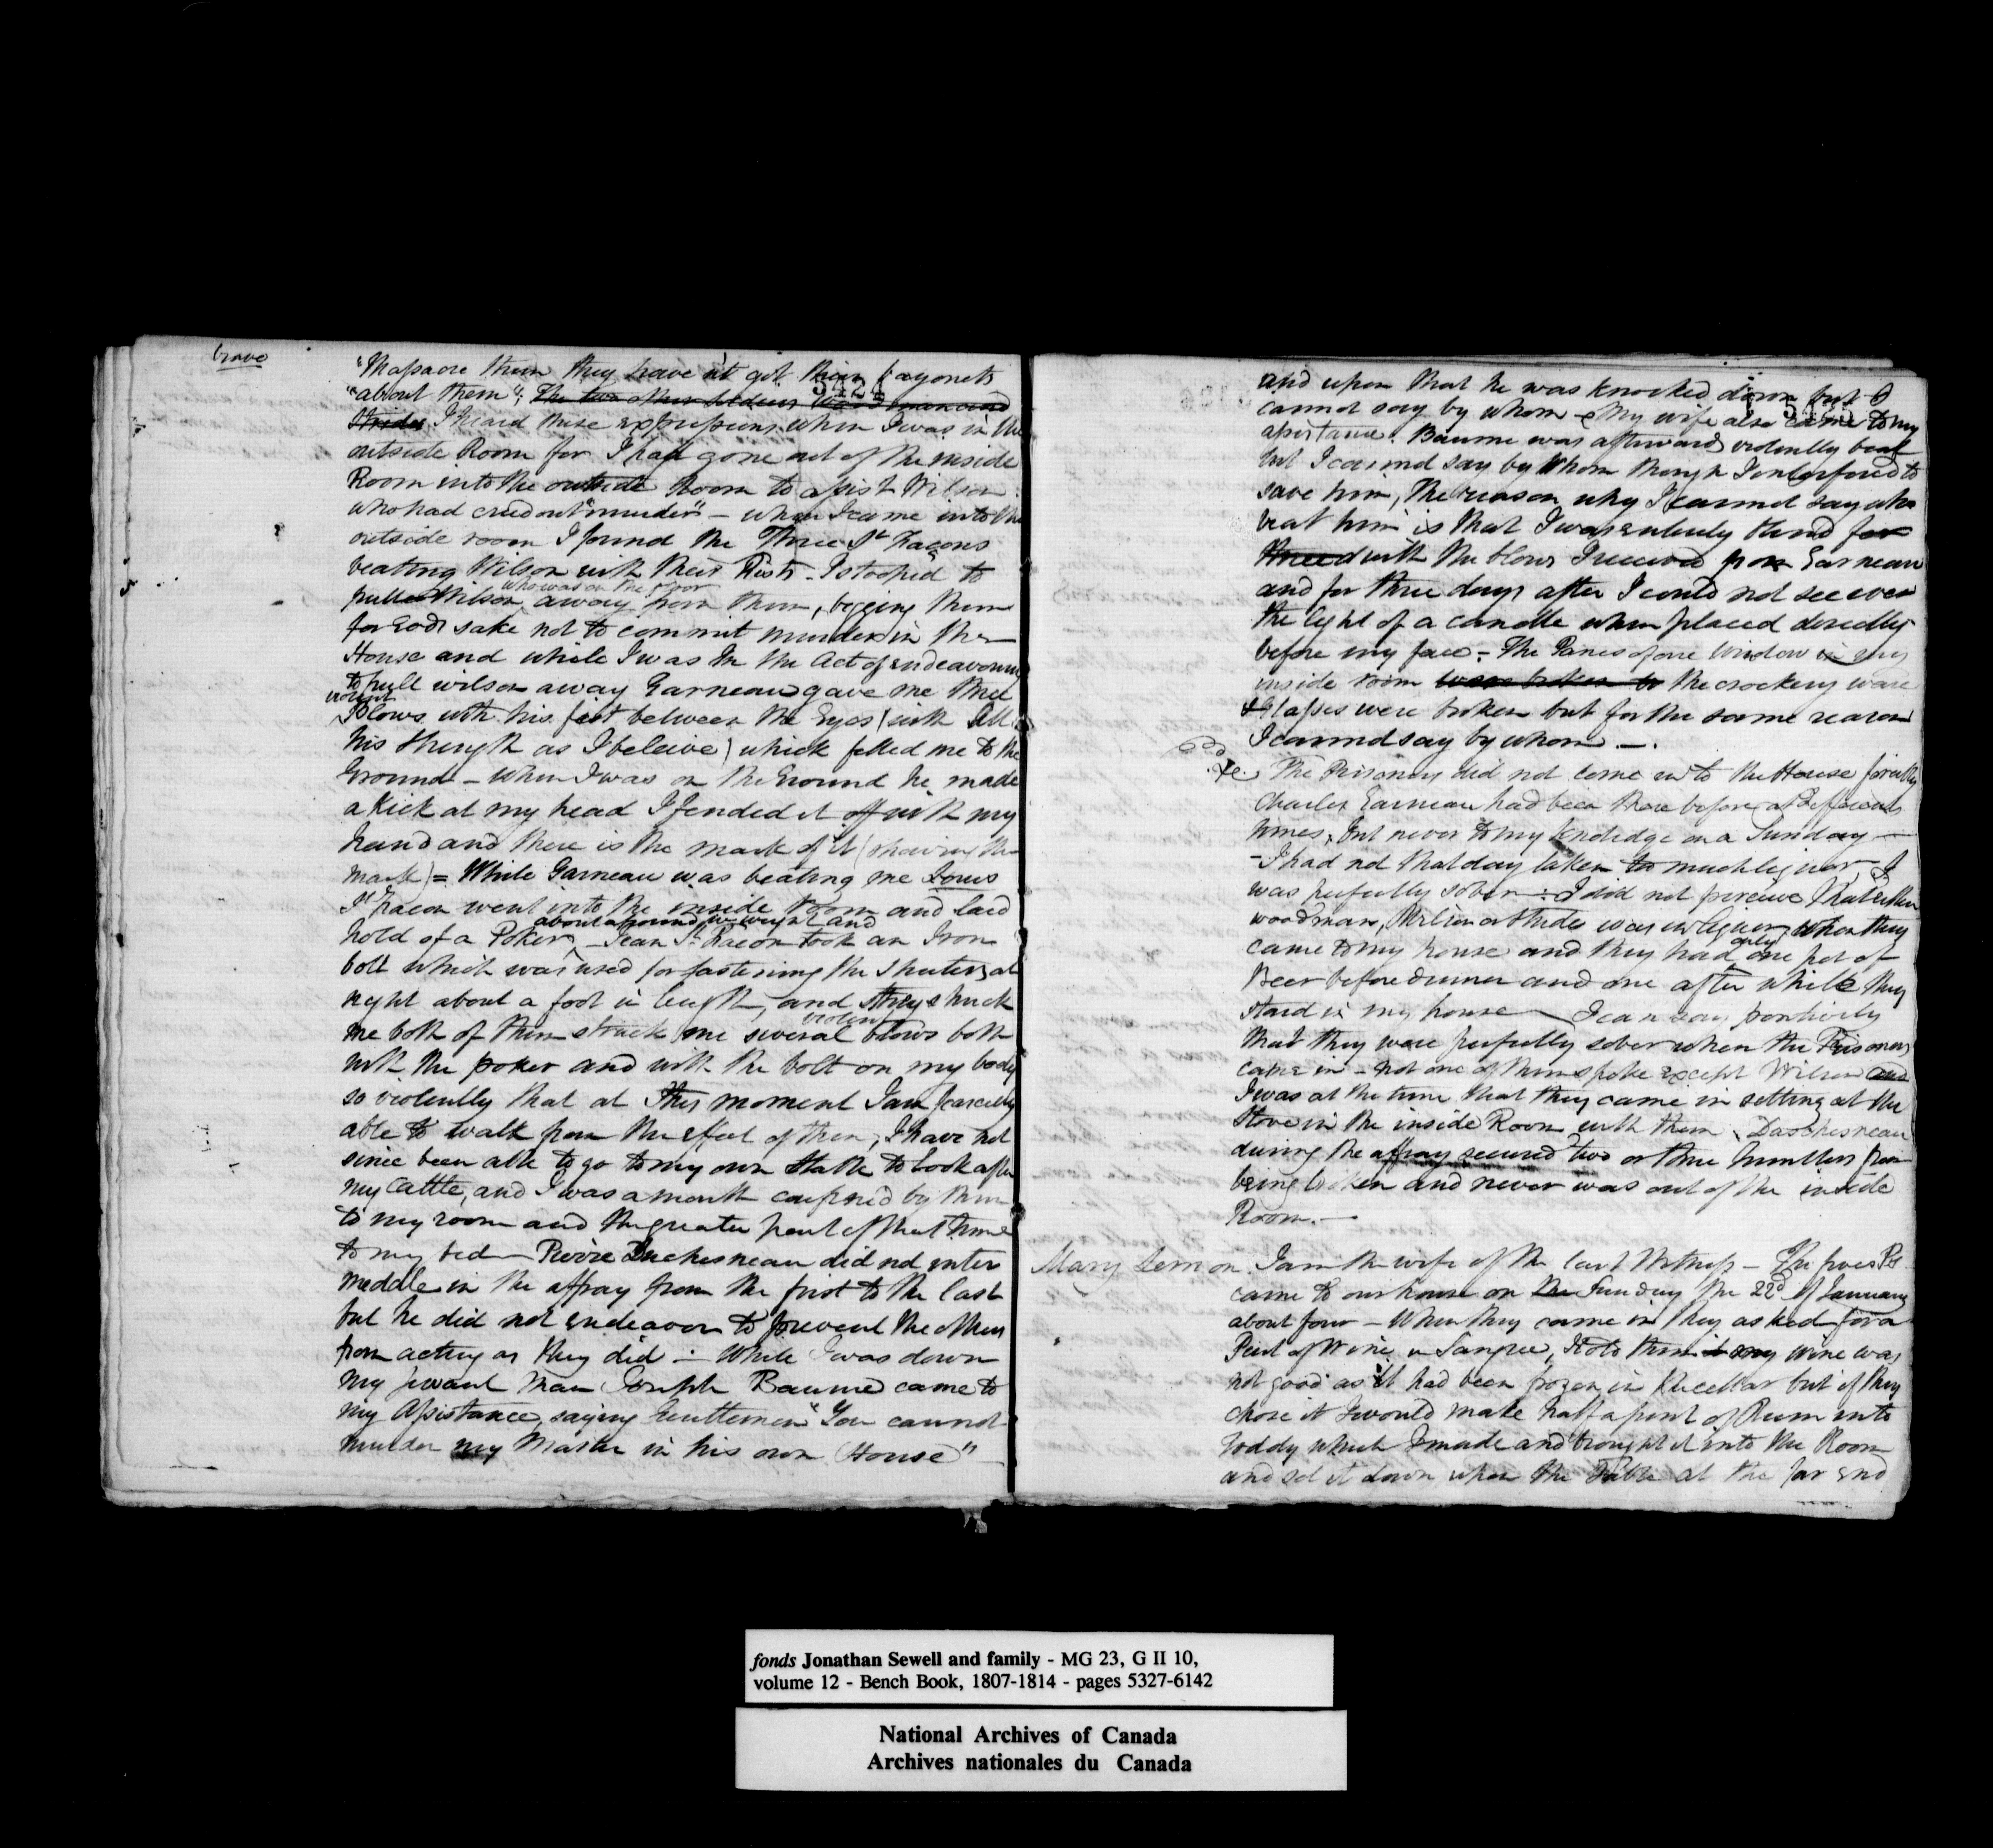 brave
"Massacre them they have n't got their bayonets
5424
"about them"; The two other soldiers were
Strides I heard these expressions when I was in the
outside Room for I had gone out of the inside
Room into the outside Room to assist Wilson
who had cried out "murder" – when I came into the
outside room I found the Three St Facons
beating Wilson with their Fists – I stooped to
who was on the floor
pull Wilson, away from them, begging them
for Gods sake not to commit murder in the
House and while I was in the act of endeavouring
to pull Wilson away Garneau gave me three
violent
Blows with his fist between the Eyes (with all
his strength as I beleive) which felled me to the
Ground – When I was on the Ground he made
a kick at my head I fended it off with my
hand and there is the mark of it (shewing the
mark) = While Garneau was beating me Louis
St Facon went into the inside room and laid
about a pound in weight and
hold of a Poker, – Jean St Facon took an Iron
bolt which was used for fastening the shutters at
night about a foot in length, and they struck
violent
me both of them struck me several blows both
with the poker and with the bolt on my body
so violently that at this moment I am scarcely
able to walk from the effect of them, I have not
since been able to go to my own stable to look after
my Cattle, and I was a month confined by them
to my room and the greater part of that time
to my bed – Pierre Duchesneau did not inter
meddle in the affray from the first to the last
but he did not endeavor to prevent the others
from acting as they did – While I was down
my servant man Joseph Baume came to
my Assistance, saying Gentlemen "You cannot
murder my Master in his own House"
and upon that he was knocked down but I
5425
cannot say by whom – My wife also came to my
assistance. Baume was afterwards violently beat
but I cannot say by whom though I interfered to
save him, the reason why I cannot say who
beat him is that I was entirely blind for
three with the blows I received from Garneau
and for three days after I could not see even
the light of a candle when placed directly
before my face – The Panes of one Window in my
inside room were broken by the crockery ware
& Glasses were broken but for the same reason
I cannot say by whom —.
Xe. The Prisoners did not come into the House forcibly
Charles Garneau had been there before at different
times, but never to my knoledge on a Sunday —
– I had not that day taken too much liquor, I
was perfectly sober – I did not perceive that either
Woodman, Wilson or Strides was in liquor when they
only
came to my house and they had one pot of
Beer before dinner and one after while they
staid in my house – I can say positively
that they were perfectly sober when the Prisoners
came in – not one of them spoke except Wilson and
I was at the time that they came in setting at the
Stove in the inside Room with them, Duchesneau
during the affray secured two or three tumblers from
being broken and never was out of the inside
Room. —
Mary Lemon. I am the wife of the last Witness – The five Prs
came to our house on the Sunday the 22d of January
about four – When they came in they asked for a
Pint of Wine in Sangree, I told them it my wine was
not good as it had been frozen in the cellar but if they
chose it I would make half a pint of Rum into
Toddy which I made and brought it into the Room
and set it down upon the Table at the far end
fonds Jonathan Sewell and family - MG 23, G II 10,
volume 12 - Bench Book, 1807-1814 - pages 5327-6142
National Archives of Canada
Archives nationales du Canada